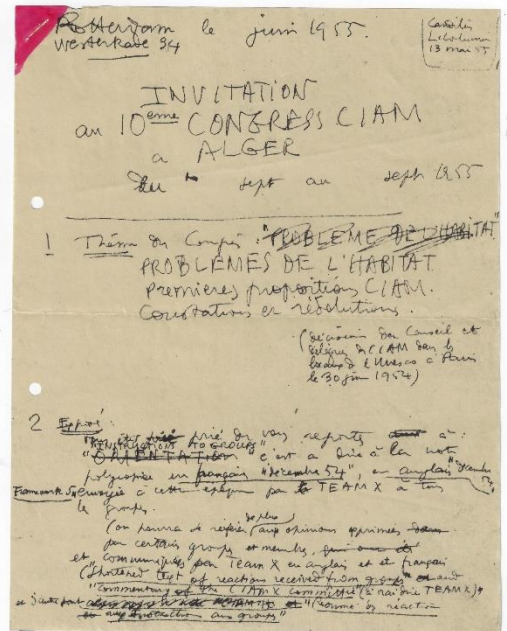 Rotterdam le juin 1955.
Westerkade 34
Candilis
13 mai 55
INVITATION
au 10eme CONGRESS CIAM
a ALGER
du sept au sept 1955
1 Thème du Congrès : "PROBLEME DE L'HABITAT"
PROBLEMES DE L'HABITAT
Premieres propositions CIAM.
Constatations et résolutions.
(décision du Conseil et
délégués du CIAM dans
Unesco à Paris
le 30 juin 1954)
2 Exposé:
prié de vous reporter à :
"INSTRUCTIONS TO GROUPS"
"ORIENTATION" c'est a dire à la note
en français "décembre 54", en anglais "december
54,
Framework 5, envoyée à cette époque par le TEAM X à tous
les groupes.
de plus
(on pourra se référer aux opinions exprimées dans
par certains groupes et membres,
et communiquées par Team X en anglais et et français
(Shortened text of reaction received from groups" and
"commentary of the CIAM X committee (c'est à dire TEAM X)"
"résumé de réaction
et instruction aux groups"